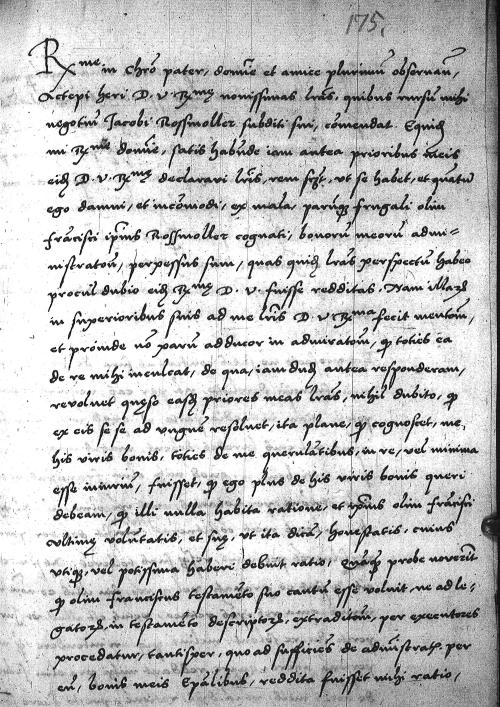 175.
R^me in Chr̃o pater, domĩe et amice plurimũ obseruañ,
Accepi heri D. V. R^mę nouissimas lr̃as, quibus rursũ mihi
negotiũ Jacobi Rossmoller subditi sui, cõmendat. Equid͂
mi R^me domĩe, satis habũde iam antea prioribus meis
eid͂ D. V. R^mę declaraui lr̃is, rem ser̃, ut se habet, et quãtũ
ego damni, et incõmodi, ex mala, parũq; frugali olim
frãcisci ip̃ius Rossmoller cognati, bonorũ meorũ admi-
nistratoñ, perpessus sum, quas quid͂ lr̃as perspectũ habeo
procul dubio eid͂ R^mę D. V. fuisse redditas. Nam illarũ
in superioribus suis ad me lr̃is D. V. R^ma fecit mentoñ,
et proinde nõ parũ adducor in admiratoñ, q̃ toties ea
de re mihi inculcat, de qua, iam dud͂ antea responderam,
reuoluet quęso easd͂ priores meas lr̃as, nihil dubito, q̃
ex eis se se ad unguẽ resoluet, ita plane, q̃ cognoscet, me,
his viris bonis, toties de me querulãtibus, in re, vel minima
esse iniuriũ, fuisset, q̃ ego plus de his viris bonis queri
debeam, q̃ illi nulla habita ratione, et ip̃ius olim frãcisci
vltimę volũtatis, et suę, ut ita dicã, honestatis, cuius
vtiq;, vel potissima haberi debuit ratio, probe nouerĩt
q̃ olim franciscus testamẽto suo cautũ esse voluit, ne ad le-
gatorũ, in testamẽto descriptorũ, extraditoñ, per executores
procedatur, tantisper, quo ad sufficiẽs de admĩstratõe per
eũ, bonis meis Ep̃alibus, reddita fuisset mihi ratio,